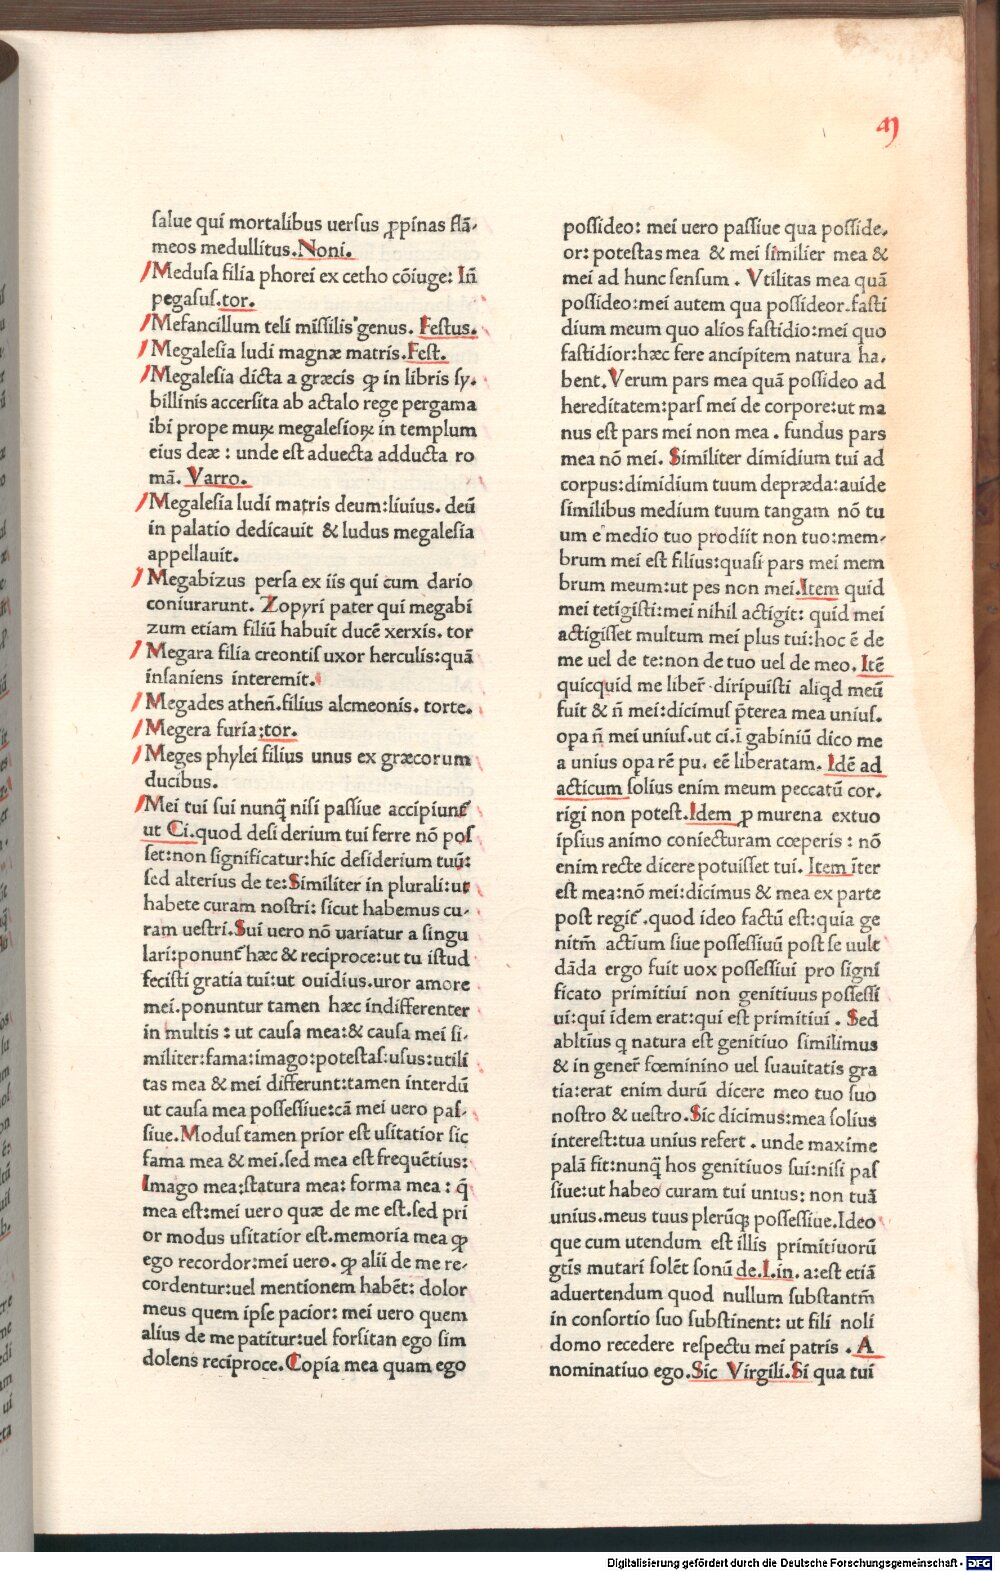 salue qui mortalibus uersus ꝓpinas flã-
meos medullitus. Noni.
Medusa filia phorci ex cetho cõiuge: Iñ
pegasus. tor.
Mesancillum teli missilis genus. Festus.
Megalesia ludi magnæ matris. Fest.
Megalesia dicta a græcis ꝙ in libris sy.
billinis accersita ab actalo rege pergama
ibi prope muꝝ megalesioꝝ in templum
eius deæ: unde est aduecta adducta ro
mã. Varro.
Megalesia ludi matris deum: liuius. deũ
in palatio dedicauit & ludus megalesia
appellauit.
Megabizus persa ex iis qui cum dario
coniurarunt. Zopyri pater qui megabi
zum etiam filiũ habuit ducẽ xerxis. tor
Megara filia creontis uxor herculis: quã
insaniens interemit.
Megades atheñ. filius alcmeonis. torte.
Megera furia: tor.
Meges phylei filius unus ex græcorum
ducibus.
Mei tui sui nunq̃ nisi passiue accipiunt̃
ut Ci. quod desiderium tui ferre nõ pos
set: non significatur: hic desiderium tuũ:
sed alterius de te: Similiter in plurali: ut
habete curam nostri: sicut habemus cu-
ram uestri. Sui uero nõ uariatur a singu
lari: ponunt̃ hæc & reciproce: ut tu istud
fecisti gratia tui: ut ouidius. uror amore
mei. ponuntur tamen hæc indifferenter
in multis: ut causa mea: & causa mei si-
militer: fama: imago: potestas: usus: utili
tas mea & mei differunt: tamen interdũ
ut causa mea possessiue: cã mei uero pas-
siue. Modus tamen prior est usitatior sic
fama mea & mei. sed mea est frequẽtius:
Imago mea: statura mea: forma mea: q̃
mea est: mei uero quæ de me est. sed pri
or modus usitatior est. memoria mea ꝙ
ego recordor: mei uero. ꝙ alii de me re-
cordentur: uel mentionem habẽt: dolor
meus quem ipse pacior: mei uero quem
alius de me patitur: uel forsitan ego sim
dolens reciproce. Copia mea quam ego
possideo: mei uero passiue qua posside.
or: potestas mea & mei similier mea &
mei ad hunc sensum. Vtilitas mea quã
possideo: mei autem qua possideor. fasti
dium meum quo alios fastidio: mei quo
fastidior: hæc fere ancipitem natura ha.
bent. Verum pars mea quã possideo ad
hereditatem: pars mei de corpore: ut ma
nus est pars mei non mea. fundus pars
mea nõ mei. Similiter dimidium tui ad
corpus: dimidium tuum depræda: auide
similibus medium tuum tangam nõ tu
um e medio tuo prodiit non tuo: mem-
brum mei est filius: quasi pars mei mem
brum meum: ut pes non mei. Item quid
mei tetigisti: mei nihil actigit: quid mei
actigisset multum mei plus tui: hoc ẽ de
me uel de te: non de tuo uel de meo. Itẽ
quicquid me liber̃ diripuisti aliqd meũ
fuit & ñ mei: dicimus p̃terea mea unius.
opa ñ mei unius. ut ci. ĩ gabiniũ dico me
a unius opa rẽ pu. eẽ liberatam. Idẽ ad
acticum solius enim meum peccatũ cor.
rigi non potest. Idem ꝓ murena extuo
ipsius animo coniecturam cœperis: nõ
enim recte dicere potuisset tui. Item ĩter
est mea: nõ mei: dicimus & mea ex parte
post regit̃. quod ideo factũ est: quia ge
nitm̃ actium siue possessiuũ post se uult
dãda ergo fuit uox possessiui pro signi
ficato primitiui non genitiuus possessi
ui: qui idem erat: qui est primitiui. Sed
abltĩus q natura est genitiuo similimus
& in gener̃ fœminino uel suauitatis gra
tia: erat enim durũ dicere meo tuo suo
nostro & uestro. Sic dicimus: mea solius
interest: tua unius refert. unde maxime
palã fit: nunq̃ hos genitiuos sui: nisi pas
siue: ut habeo curam tui unius: non tuã
unius. meus tuus plerũqꝫ possessiue. Ideo
que cum utendum est illis primitiuorũ
gtĩs mutari solẽt sonũ de. I. in. a: est etiã
aduertendum quod nullum substantm̃
in consortio suo substinent: ut fili noli
domo recedere respectu mei patris. A
nominatiuo ego. Sic Virgili. Si qua tui
Digitalisierung gefördert durch die Deutsche Forschungsgemeinschaft - DFG